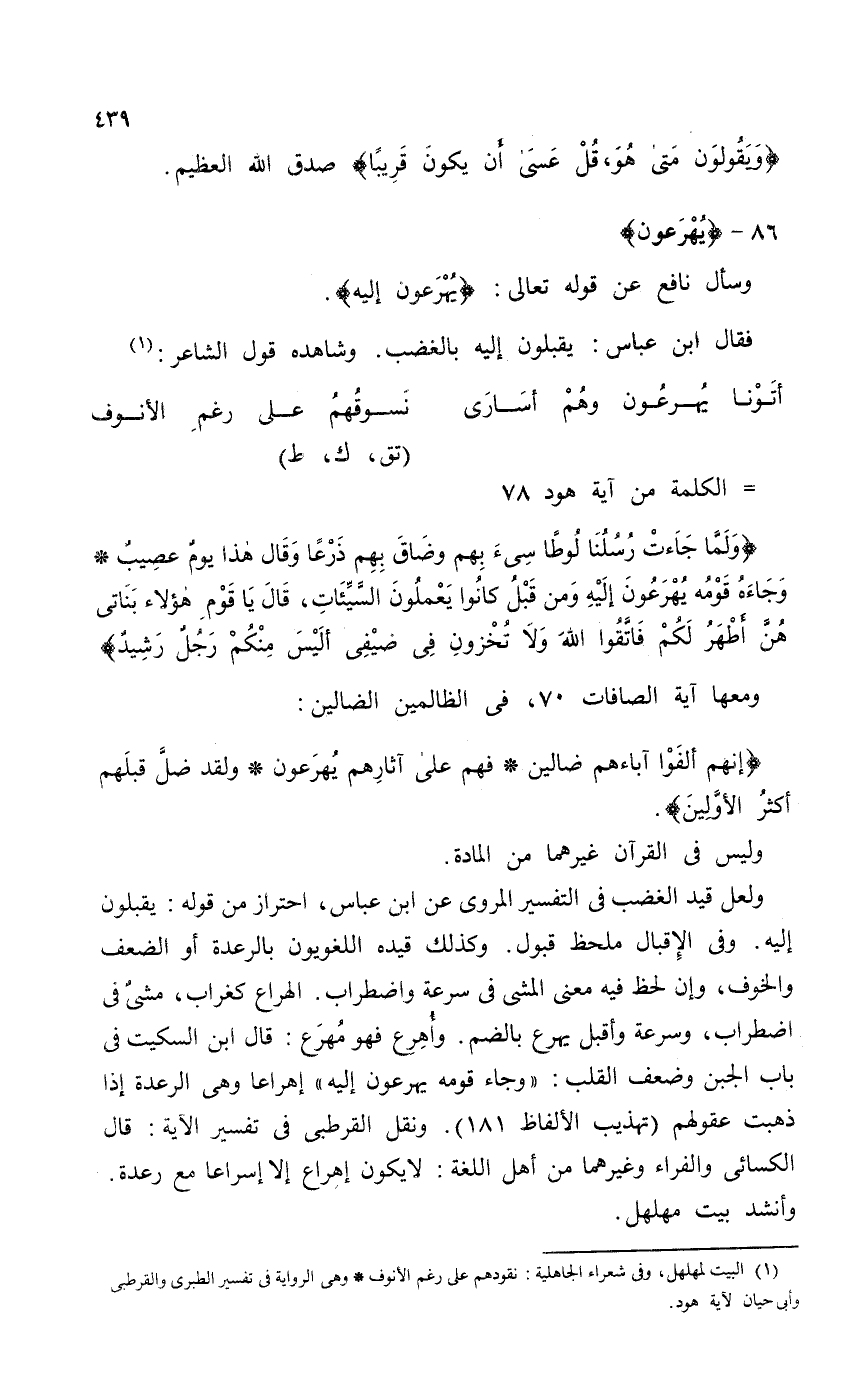 ٤٣٩
﴿وَيَقُولوَن مَتىٰ هُوَ، قُلْ عَسىَ أَن يكونَ قَرِيبًا﴾ صدق الله العظيم.
٨٦ - ﴿يُهْرَعون﴾
وسأل نافع عن قوله تعالى : ﴿يُهْرَعون إليه﴾.
فقال ابن عباس : يقبلون إليه بالغضب. وشاهده قول الشاعر :(١)
أتَوْنا يُهرعُون وهُمْ أسَارَى نَسوقُهمُ على رغمِ الأنوف
(تق، ك، ط)
= الكلمة من آية هود ٧٨
﴿وَلَمَّا جَاءتْ رُسُلُنَا لُوطًا سِىءَ بِهم وضَاقَ بِهِم ذَرْعًا وَقَال هٰذا يومٌ عصِيبٌ *
وَجَاءَهُ قَوْمُه يُهْرَعُونَ إلَيْهِ وَمن قَبْلُ كانُوا يَعْملُونَ السَّيِّئَاتِ، قَالَ يَا قَوْمِ هٰؤلاء بَنَاتى
هُنَّ أَطْهَرُ لَكُمْ فَاتَّقُوا اللهَ وَلَا تُخْزونِ فِى ضيْفِى ألَيْسَ مِنْكُمْ رَجُلٌ رَشِيدٌ﴾
ومعها آية الصافات ٧٠، فى الظالمين الضالين :
﴿إنهم ألفَوْا آباءهم ضالين * فهم علىٰ آثارِهم يُهرَعون * ولقد ضلَّ قبلَهم
أكثرُ الأوَّلِينَ﴾.
وليس فى القرآن غيرهما من المادة.
ولعل قيد الغضب فى التفسير المروى عن ابن عباس، احتراز من قوله : يقبلون
إليه. وفى الإقبال ملحظ قبول. وكذلك قيده اللغويون بالرعدة أو الضعف
والخوف، وإن لحظ فيه معنى المشى فى سرعة واضطراب. الهراع كغراب، مشىٌ فى
اضطراب، وسرعة وأقبل يهرع بالضم. وأُهرِع فهو مُهرَع : قال ابن السكيت فى
باب الجبن وضعف القلب : «وجاء قومه يهرعون إليه» إهراعا وهى الرعدة إذا
ذهبت عقولهم (تهذيب الألفاظ ١٨١). ونقل القرطبى فى تفسير الآية : قال
الكسائى والفراء وغيرهما من أهل اللغة : لايكون إهراع إلا إسراعا مع رعدة.
وأنشد بيت مهلهل.
(١) البيت لمهلهل، وفى شعراء الجاهلية : نقودهم على رغم الأنوف * وهى الرواية فى تفسير الطبرى والقرطبى
وأبى حيان لآية هود.